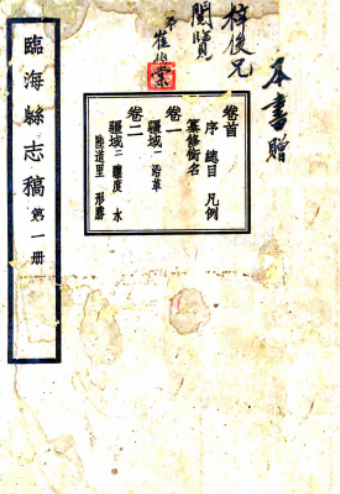 本書贈
梓俊兄
閱覽
弟崔伯棠
卷首
序 總目 凡例
纂修銜名
卷一
疆域一 沿革
卷二
疆域二 鹽度 水
陸道里 形勝
臨海縣志稿 第一册